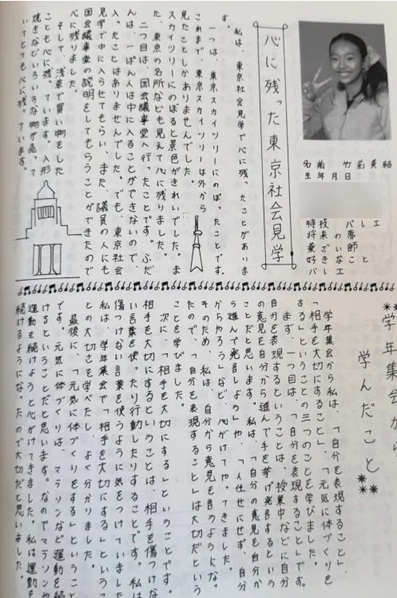 心に残った東京社会見学
私は、東京社会見学で心に残ったことがありま
す。
一つは、東京スカイツリーにのぼったことです。
これまで、東京スカイツリーは外から
見たことしかありませんでした。
スカイツリーにのぼると景色がきれいでした。ま
た、東京の名所なども見えて心に残りました。
二つ目は、国会議事堂へ行ったことです。ふだ
んは、一ぱん人は中に入ることができないので、
入ったことはありませんでした。でも、東京社会
見学で中に入らせてもらい、また、議員の人にも
国会議事堂の説明をしてもらうことができたので
心に残りました。
そして、浅草で買い物をした
ことも心に残っています。人形
焼きなどいろいろな物が売って
いてとても心に残っています。
名前 竹前
生年月日
学年集会から
学んだこと
学年集会から私は、「自分を表現すること」、
「相手を大切にすること」、「元気に体づくりを
する」ということの三つのことを学びました。
まず、一つ目は、「自分を表現する」です。
自分を表現するということは、授業中などに自分
の意見を自分から進んで手を挙げ発言するという
ことだと思います。私は、「自分の意見を自分か
ら進んで発言しよう」や「人任せにせず、自分
からやろう」など心がけてやってきました。
そのため、私は、自分から意見を言うようになっ
たので、「自分を表現すること」は大切だという
ことを学びました。
次に、「相手を大切にする」ということです。
相手を大切にするということは、相手を傷つけな
い言葉を使ったり行動したりすることです。私は
傷つけない言葉を使うように気をつけていました。
私は、学年集会で「相手を大切にする」というこ
との大切さを学べたし、よく分かりました。
最後に、「元気に体づくりをする」ということ
です。元気に体づくりは、マラソンなど運動を続
けるということだと思います。なのでマラソンや
運動を続けようと心がけてきました。私は運動を
続けるようになったので大切だと思いました。